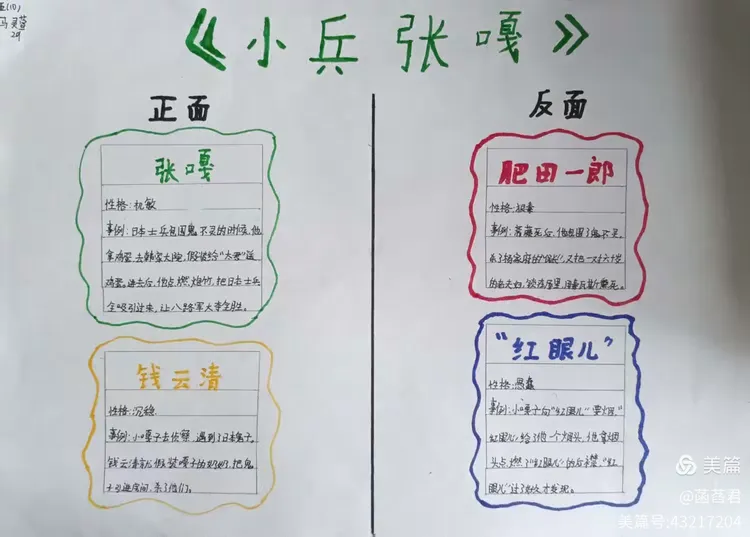 五(10)
马灵萱
29
《小兵张嘎》
正面
张嘎
性格:机敏
事例:日本士兵包围鬼不灵的时候,他
拿鸡蛋,去韩家大院,假装给"太君"送
鸡蛋。进去后,他点燃炮竹,把日本士兵
全吸引过来,让八路军大李全胜。
钱云清
性格:沉稳
事例:小嘎子去侦察,遇到了日本鬼子,
钱云清就假装嘎子的奶奶,把鬼
子引进房间,杀了他们。
反面
肥田一郎
性格:狠毒
事例:斋藤死后,他包围了鬼不灵,
杀了杨家府的"保长",又把一对六十岁
的老夫妇,锁在屋里,
"红眼儿"
性格:愚蠢
事例:小嘎子向"红眼儿"要烟,"
红眼儿"给了他一个烟头,他拿烟
头点燃了"红眼儿"的后襟,"红
眼儿"过了很久才发现。
美篇
@菡萏君
美篇号:43217204